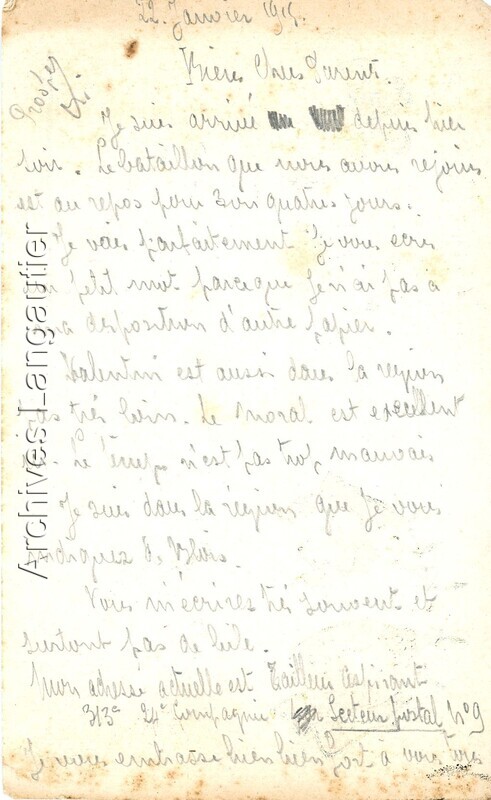 22 Janvier 1915.
Biens Chers Parent.
Je suis arrivé depuis hier
soir. Le bataillon que nous avons rejoins
est au repos pour 3 ou quatres jours.
Je vais parfaitement Je vous ecris
un petit mot parceque Je n'ai pas a
ma disposition d'autre papier.
Valentin est aussi dans la region
pas très loin. Le moral est excellent
Le temps n'est pas trop mauvais
Je suis dans la region que Je vous
indiquez de Blois.
Vous m'écrires très souvent et
surtout pas de bile.
Mon adresse actuelle est Tailleur Aspirant
313e 24e Compagnie Secteur postal No 9
Je vous embrasse bien bien fort à vous tous
Archives Langautier